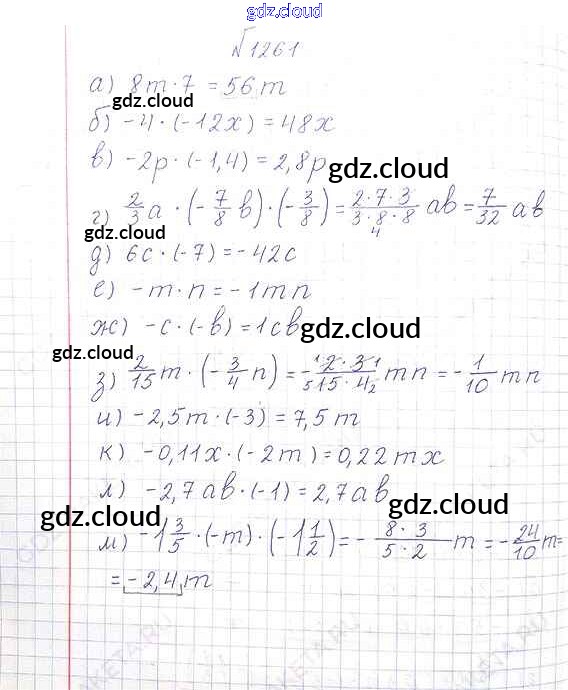 gdz.cloud
№1261
а) 8m · 7 = 56m
gdz.cloud
б) -4 · (-12x) = 48x
в) -2p · (-1,4) = 2,8p
gdz.cloud
г) 2/3 a · (-7/8 b) · (-3/8) = 2·7·3/3·8·8 ab = 7/32 ab
4
gdz.cloud
д) 6c · (-7) = -42c
е) -m · n = -1mn
ж) -c · (-b) = 1cb
gdz.cloud
gdz.cloud
з) 2/15 m · (-3/4 n) = - 1 2·3 1/5 15·4 2 mn = -1/10 mn
и) -2,5m · (-3) = 7,5m
к) -0,11x · (-2m) = 0,22mx
л) -2,7ab · (-1) = 2,7ab
gdz.cloud
gdz.cloud
м) -1 3/5 · (-m) · (-1 1/2) = - 8·3/5·2 m = -24/10 m =
gdz.cloud
= -2,4m